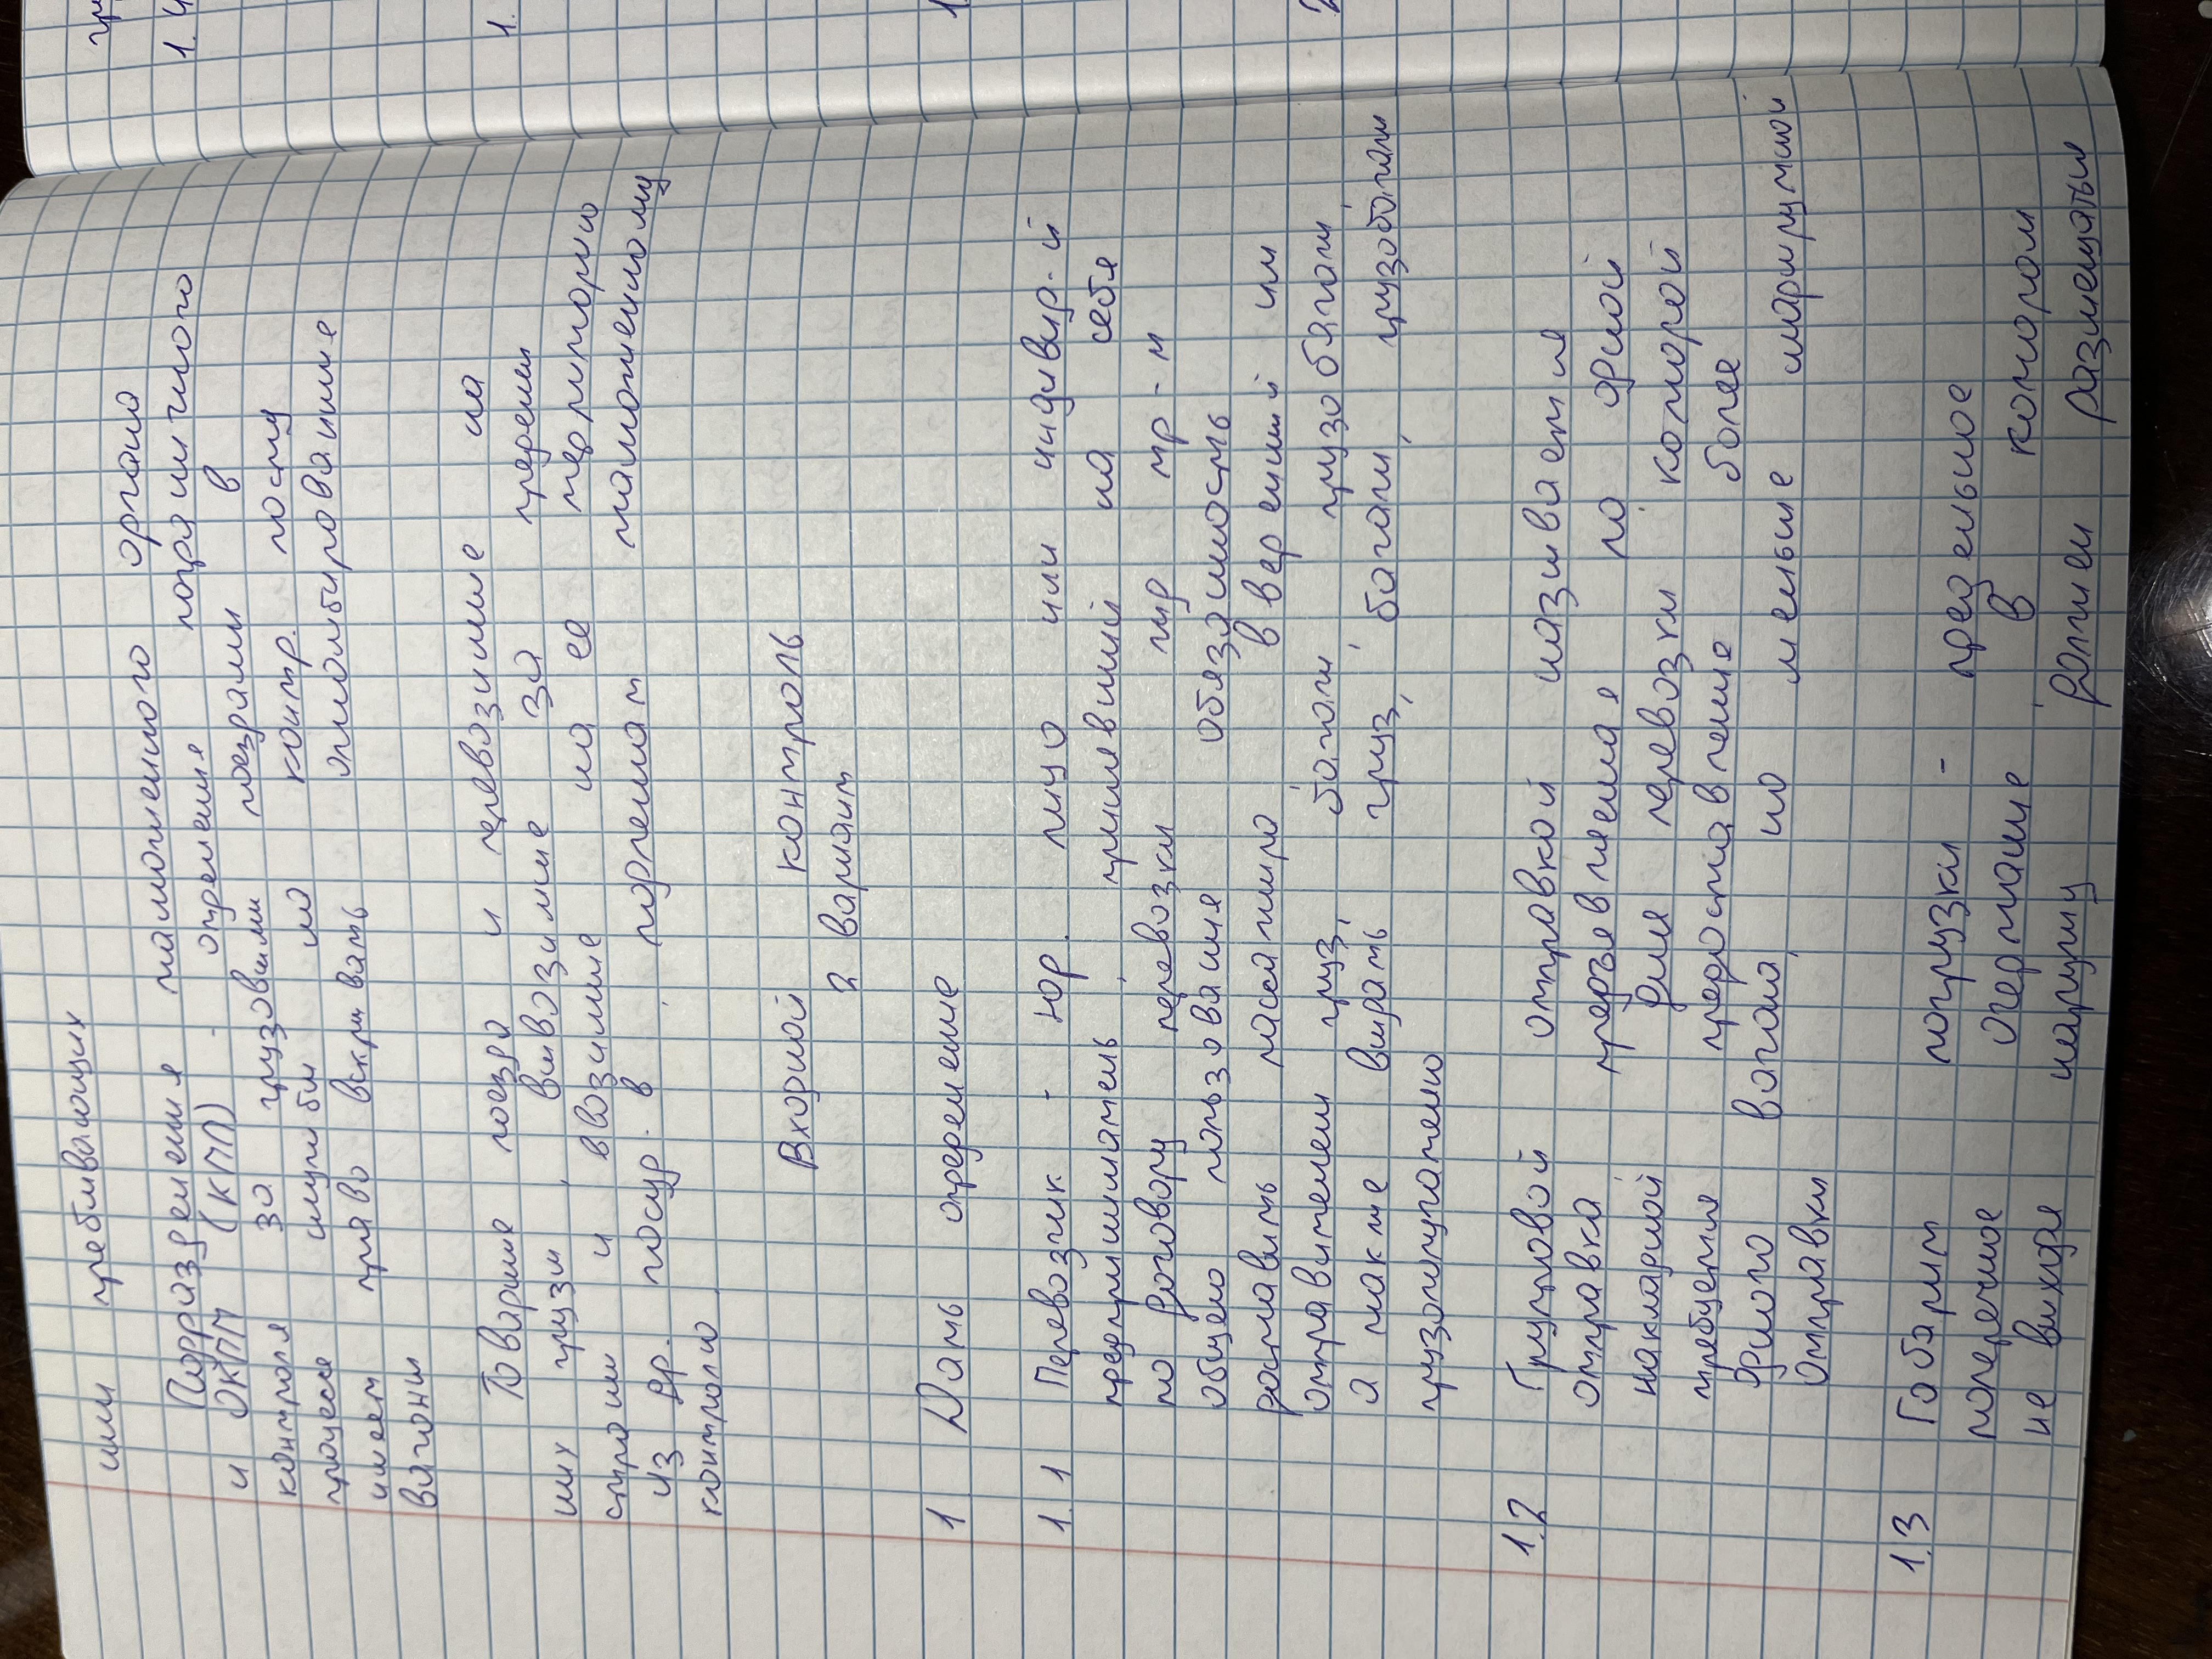 ими пребывающих
Подразделения таможенного органа
и ОКПП (КПП) - отделения пограничного
контроля за грузовыми поездами в
процессе службы по контр. посту
имеет право вскрывать, пломбирование
вагоны
Товарные поезда и перевозимые на
них грузы, вывозимые за предел
страны и ввозимые на ее территорию
из др. госуд. в, подлежат таможенному
контролю
Входной контроль
2 вариант
1 Дать определение
1.1 Перевозчик - юр. лицо или индивид. й
предприниматель, принявший на себя
по договору перевозки
общего пользования обязанность
доставить пассажира в вверенный им
отправителем груз, багаж, грузобагаж,
а также выдать груз, багаж, грузобагаж
грузополучателю
1.2 Групповой отправкой называется
отправка предъявления по одной
накладной для перевозки которой
требуется предоставление более
одного вагона, но меньше маршрутной
отправки
1.3 Габарит погрузки - предельное
поперечное очертание в котором
не выходя наружу должен размещаться
1.